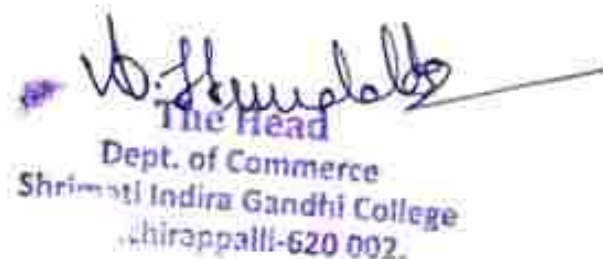 The Head
Dept. of Commerce
Shrimati Indira Gandhi College
chirappalli-620 002.